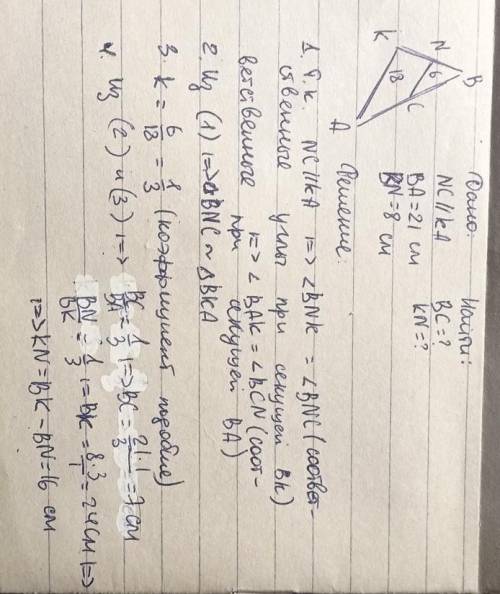 Дано:
NC||KA
BA = 21 см
BN = 8 см
Найти:
BC = ?
KN = ?
B
N
6
C
K
18
A
Решение:
1. Т.к. NC||KA |=> ∠BNK = ∠BNC (соответ-
ственные углы при секущей BK)
|=> ∠BAK = ∠BCN (соот-
ветственные при секущей BA)
2. Из (1) |=> ΔBNC ~ ΔBKA
3. k = 6/18 = 1/3 (коэффициент подобия)
4. Из (2) и (3) |=> BC/BA = 1/3 |=> BC = 21·1/3 = 7 см
BN/BK = 1/3 |= BK = 8·3/1 = 24 см |=>
|=> KN = BK - BN = 16 см